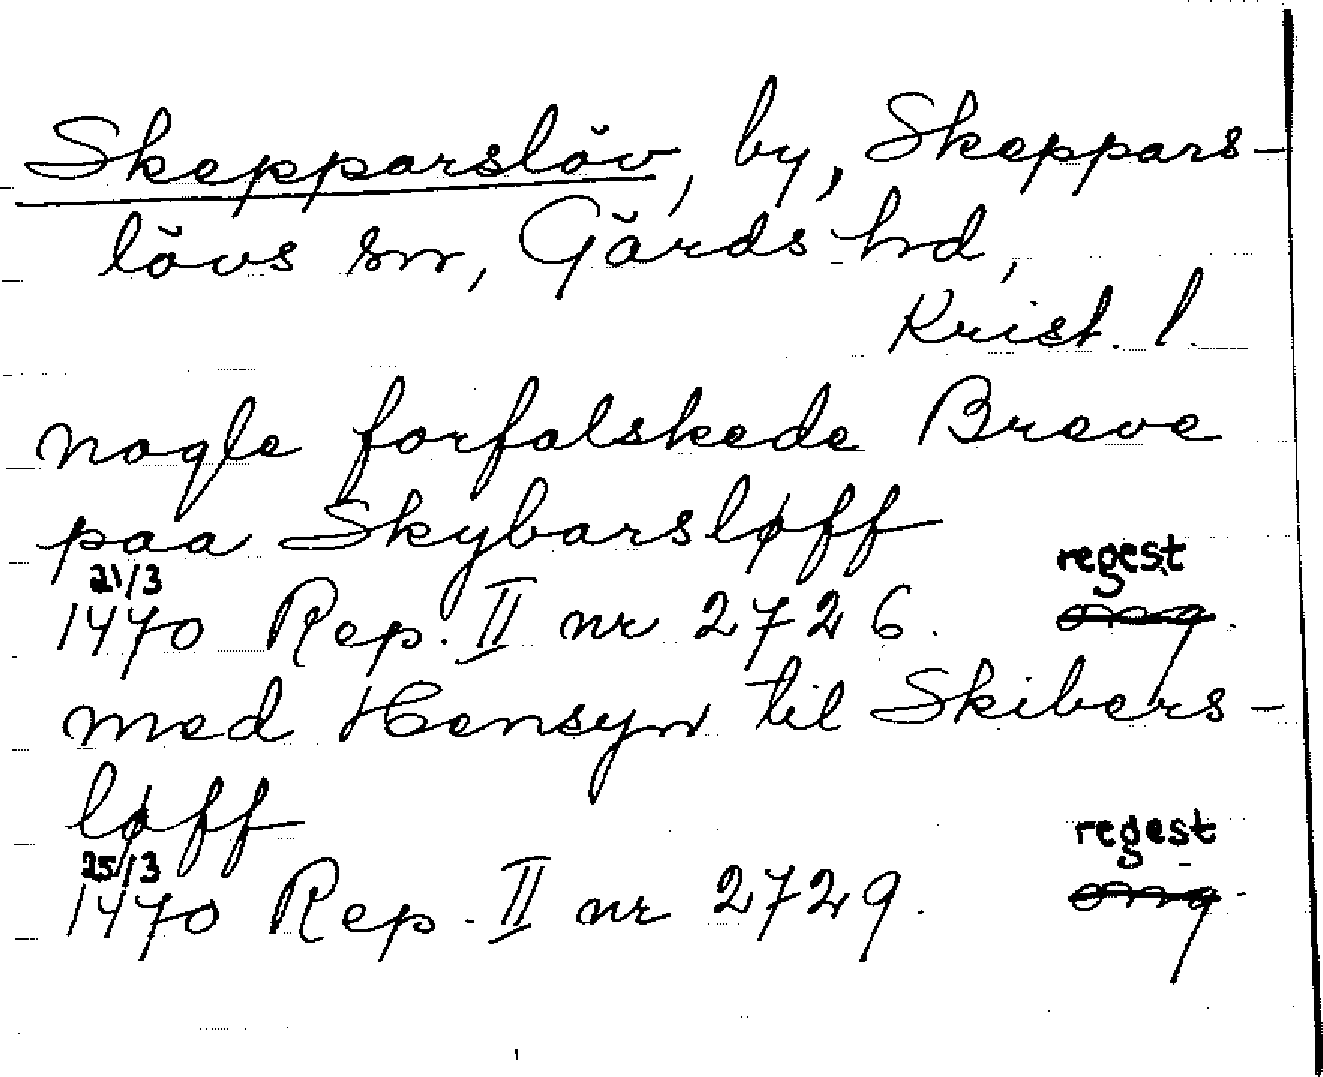 Skepparslöv, by, Skeppars-
lövs sn, Gärds hd,
Krist. l.
nogle forfalskede Breve
paa Skybarsløff
21/3 regest
1470 Rep. II nr 2726. omg.
med Hensyn til Skibers-
løff
25/3 regest
1470 Rep. II nr 2729. omg.